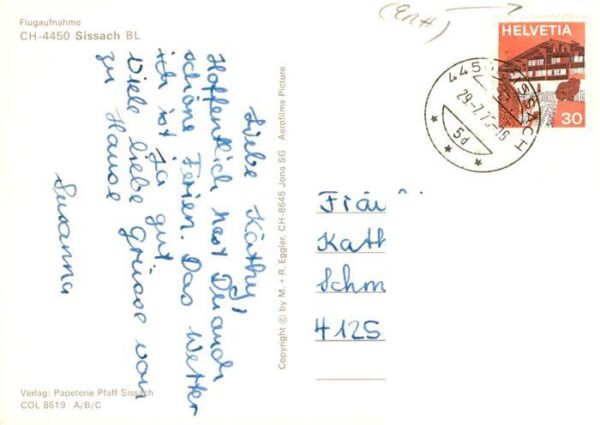 Flugaufnahme
CH-4450 Sissach BL
Liebe Käthy,
Hoffentlich hast Du auch
schöne Ferien. Das Wetter
ist ja gut
Viele liebe Grüsse von
zu Hause
Susanna
Verlag: Papeterie Pfaff Sissach
COL 8619 A/B/C
Copyright © by M. + R. Eggler, CH-8645 Jona SG Aerofilms Picture
HELVETIA
30
4450 SISSACH
5d
Fräu
Kath
Schm
4125